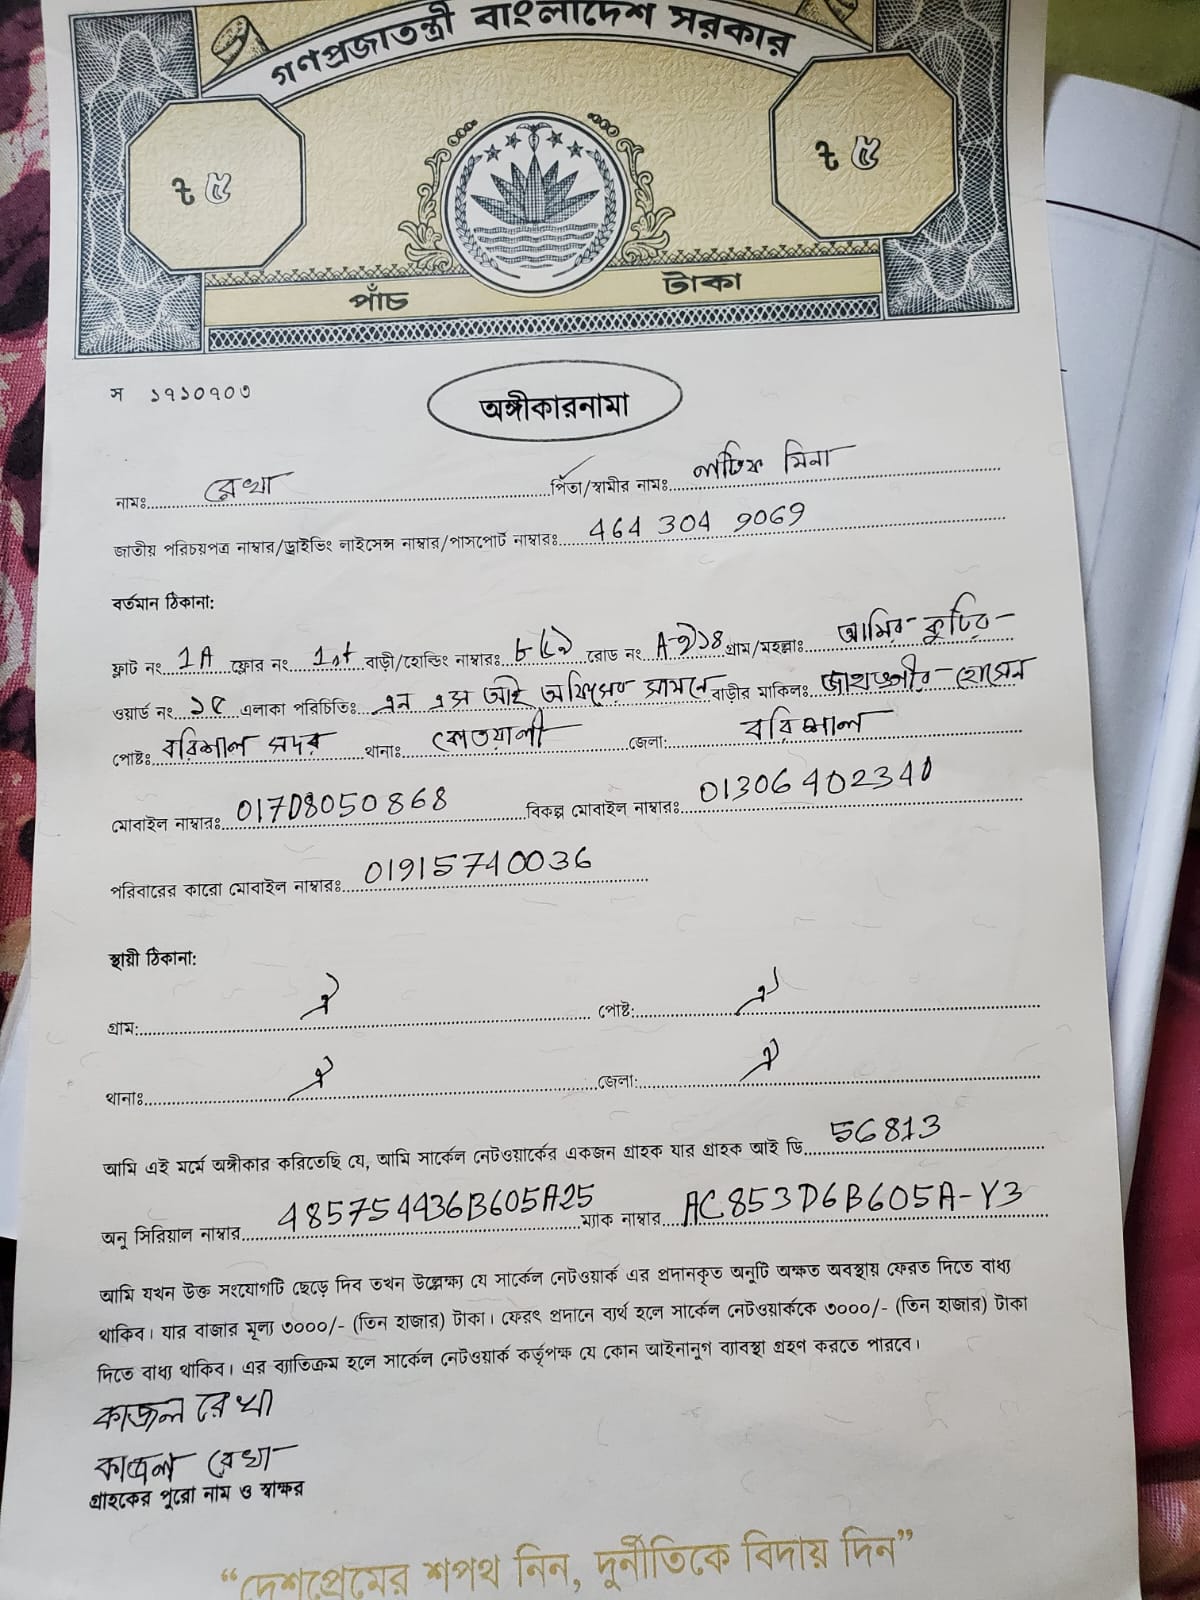 গণপ্রজাতন্ত্রী বাংলাদেশ সরকার
৳ ৫ ৳ ৫
পাঁচ টাকা
স ১৭১০৭০৩
অঙ্গীকারনামা
নামঃ রেখা পিতা/স্বামীর নামঃ লতিফ মিনা
জাতীয় পরিচয়পত্র নাম্বার/ড্রাইভিং লাইসেন্স নাম্বার/পাসপোর্ট নাম্বারঃ 464 304 9069
বর্তমান ঠিকানা:
ফ্লাট নং 1A ফ্লোর নং 1st বাড়ী/হোল্ডিং নাম্বারঃ রোড নং গ্রাম/মহল্লাঃ আমির কুটির
ওয়ার্ড নং ১৫ এলাকা পরিচিতিঃ এন এস আই অফিসের সামনে বাড়ীর মাকিলঃ জাহাঙ্গীর হোসেন
পোষ্টঃ বরিশাল সদর থানাঃ কোতয়ালী জেলা: বরিশাল
মোবাইল নাম্বারঃ 01708050868 বিকল্প মোবাইল নাম্বারঃ 01306402340
পরিবারের কারো মোবাইল নাম্বারঃ 01915740036
স্থায়ী ঠিকানা:
গ্রাম: ঐ পোষ্ট: ঐ
থানাঃ ঐ জেলা: ঐ
আমি এই মর্মে অঙ্গীকার করিতেছি যে, আমি সার্কেল নেটওয়ার্কের একজন গ্রাহক যার গ্রাহক আই ডি 56813
অনু সিরিয়াল নাম্বার 485754436B605A25 ম্যাক নাম্বার AC853D6B605A-Y3
আমি যখন উক্ত সংযোগটি ছেড়ে দিব তখন উল্লেক্ষ্য যে সার্কেল নেটওয়ার্ক এর প্রদানকৃত অনুটি অক্ষত অবস্থায় ফেরত দিতে বাধ্য
থাকিব। যার বাজার মূল্য ৩০০০/- (তিন হাজার) টাকা। ফেরৎ প্রদানে ব্যর্থ হলে সার্কেল নেটওয়ার্ককে ৩০০০/- (তিন হাজার) টাকা
দিতে বাধ্য থাকিব। এর ব্যাতিক্রম হলে সার্কেল নেটওয়ার্ক কর্তৃপক্ষ যে কোন আইনানুগ ব্যাবস্থা গ্রহণ করতে পারবে।
কাজল রেখা
কাজল রেখা
গ্রাহকের পুরো নাম ও স্বাক্ষর
“দেশপ্রেমের শপথ নিন, দুর্নীতিকে বিদায় দিন”